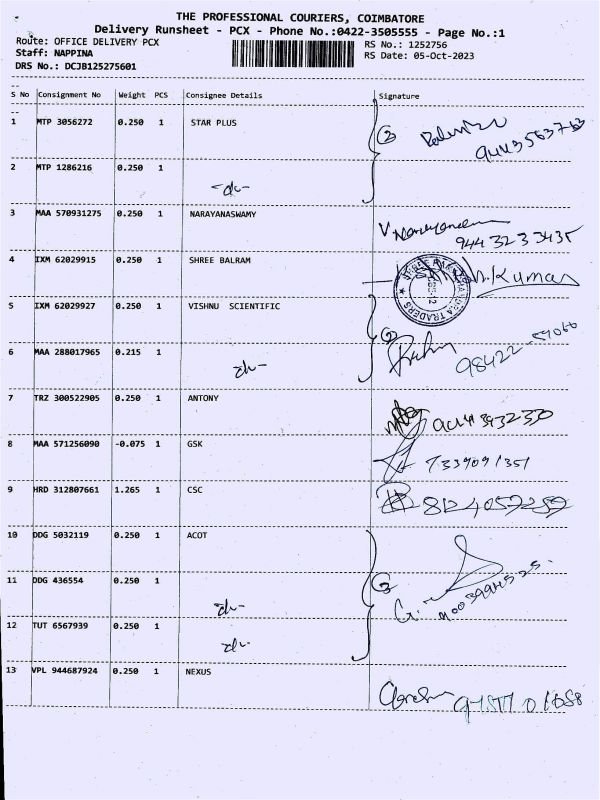 THE PROFESSIONAL COURIERS, COIMBATORE
Delivery Runsheet - PCX - Phone No.:0422-3505555 - Page No.:1
Route: OFFICE DELIVERY PCX
RS No.: 1252756
Staff: NAPPINA
RS Date: 05-Oct-2023
DRS No.: DCJB125275601
S No Consignment No Weight PCS Consignee Details Signature
1 MTP 3056272 0.250 1 STAR PLUS
2 MTP 1286216 0.250 1 -do-
3 MAA 570931275 0.250 1 NARAYANASWAMY
V. Narayanaswamy
944 323 3435
4 IXM 62029915 0.250 1 SHREE BALRAM N.Kumar
TRADERS
5 IXM 62029927 0.250 1 VISHNU SCIENTIFIC
6 MAA 288017965 0.215 1 -do- 98422
7 TRZ 300522905 0.250 1 ANTONY
8 MAA 571256090 -0.075 1 GSK 7339091351
9 HRD 312807661 1.265 1 CSC 8124059289
10 DDG 5032119 0.250 1 ACOT
11 DDG 436554 0.250 1 -do- 3
12 TUT 6567939 0.250 1 -do-
13 VPL 944687924 0.250 1 NEXUS